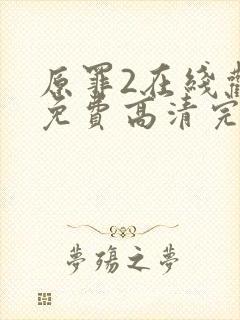 原罪2在綫
免費高清完
夢殤之夢